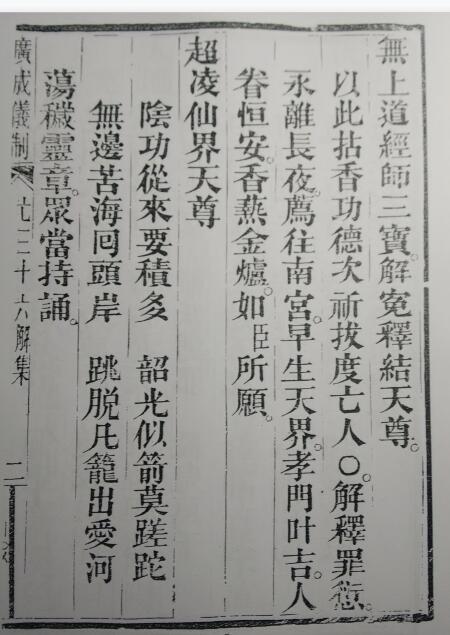 無上道經師三寶。解寃釋結天尊。
以此拈香功德次祈拔度亡人〇。解釋罪愆。
永離長夜。薦往南宮。早生天界。孝門叶吉。人
眷恒安。香爇金爐。如臣所願。
超凌仙界天尊
陰功從來要積多 韶光似箭莫蹉跎
無邊苦海囘頭岸 跳脱凡籠出愛河
蕩穢靈章。眾當持誦。
廣成儀制 三十六解集 二